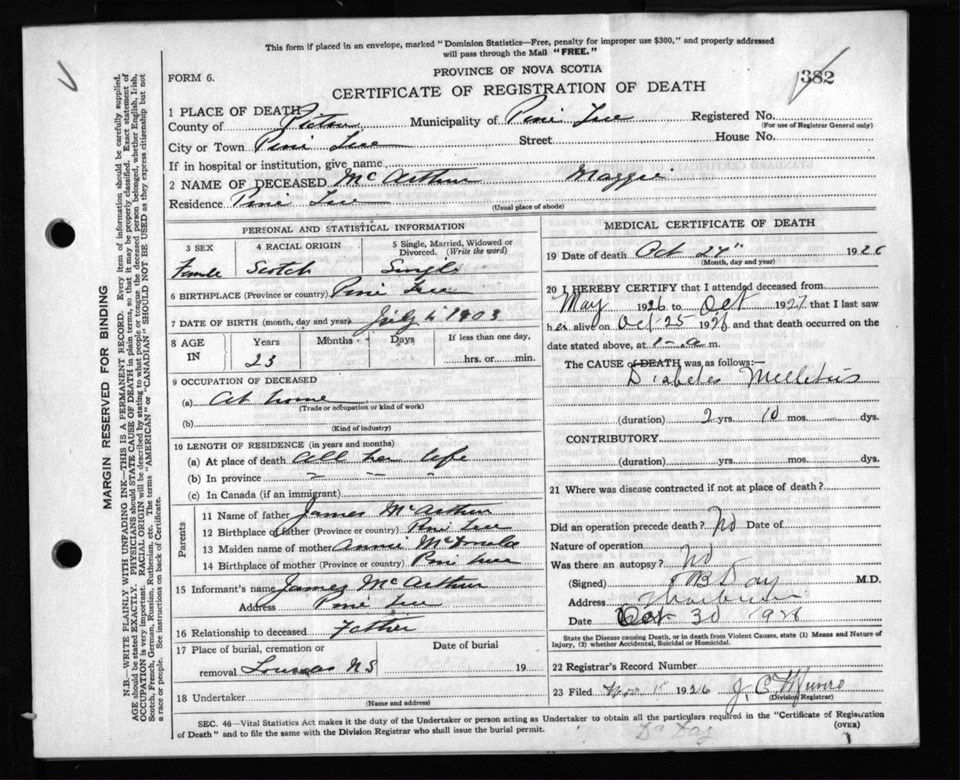 This form if placed in an envelope, marked "Dominion Statistics—Free, penalty for improper use $300," and properly addressed
will pass through the Mail "FREE."
PROVINCE OF NOVA SCOTIA
FORM 6.
382
CERTIFICATE OF REGISTRATION OF DEATH
1 PLACE OF DEATH
County of Pictou Municipality of Pine Tree Registered No.
(For use of Registrar General only)
City or Town Pine Tree Street House No.
If in hospital or institution, give name
2 NAME OF DECEASED McArthur Maggie
Residence Pine Tree
(Usual place of abode)
PERSONAL AND STATISTICAL INFORMATION
3 SEX 4 RACIAL ORIGIN 5 Single, Married, Widowed or Divorced. (Write the word)
Female Scotch Single
6 BIRTHPLACE (Province or country) Pine Tree
7 DATE OF BIRTH (month, day and year) July 6 1903
8 AGE IN Years Months Days If less than one day,
23 hrs. or min.
9 OCCUPATION OF DECEASED
(a) At home
(Trade or occupation or kind of work)
(b)
(Kind of industry)
10 LENGTH OF RESIDENCE (in years and months)
(a) At place of death all her life
(b) In province
(c) In Canada (if an immigrant)
Parents
11 Name of father James McArthur
12 Birthplace of father (Province or country) Pine Tree
13 Maiden name of mother Annie McDonald
14 Birthplace of mother (Province or country) Pine tree
15 Informant's name James McArthur
Address Pine Tree
16 Relationship to deceased Father
17 Place of burial, cremation or removal Date of burial
N S 19
18 Undertaker
(Name and address)
MEDICAL CERTIFICATE OF DEATH
19 Date of death Oct 27" 1926
(Month, day and year)
20 I HEREBY CERTIFY that I attended deceased from
May 1926 to Oct 1927 that I last saw
her alive on Oct 25 1926 and that death occurred on the
date stated above, at 1-a m.
The CAUSE of DEATH was as follows:—
Diabetes Mellitus
(duration) 2 yrs. 10 mos. dys.
CONTRIBUTORY
(duration) yrs. mos. dys.
21 Where was disease contracted if not at place of death?
Did an operation precede death? No Date of
Nature of operation
Was there an autopsy? No
(Signed) B Day M.D.
Address Thorburn
Date Oct 30 1926
State the Disease causing Death, or in death from Violent Causes, state (1) Means and Nature of
Injury, (2) whether Accidental, Suicidal or Homicidal.
22 Registrar's Record Number
23 Filed Nov 15 1926 J. C. Munro
(Division Registrar)
SEC. 46—Vital Statistics Act makes it the duty of the Undertaker or person acting as Undertaker to obtain all the particulars required in the "Certificate of Registration
of Death" and to file the same with the Division Registrar who shall issue the burial permit.
(OVER)
Dr Day
MARGIN RESERVED FOR BINDING
N.B.—WRITE PLAINLY WITH UNFADING INK—THIS IS A PERMANENT RECORD. Every item of information should be carefully supplied.
AGE should be stated EXACTLY. PHYSICIANS should STATE CAUSE OF DEATH in plain terms, so that it may be properly classified. Exact statement of
OCCUPATION is very important. RACIAL ORIGIN will be described by stating to what people or tongue the deceased person belonged, whether English, Irish,
Scotch, French, German, Russian, Ruthenian, etc. The terms "AMERICAN" or "CANADIAN" SHOULD NOT BE USED as they express citizenship but not
a race or people. See instructions on back of Certificate.